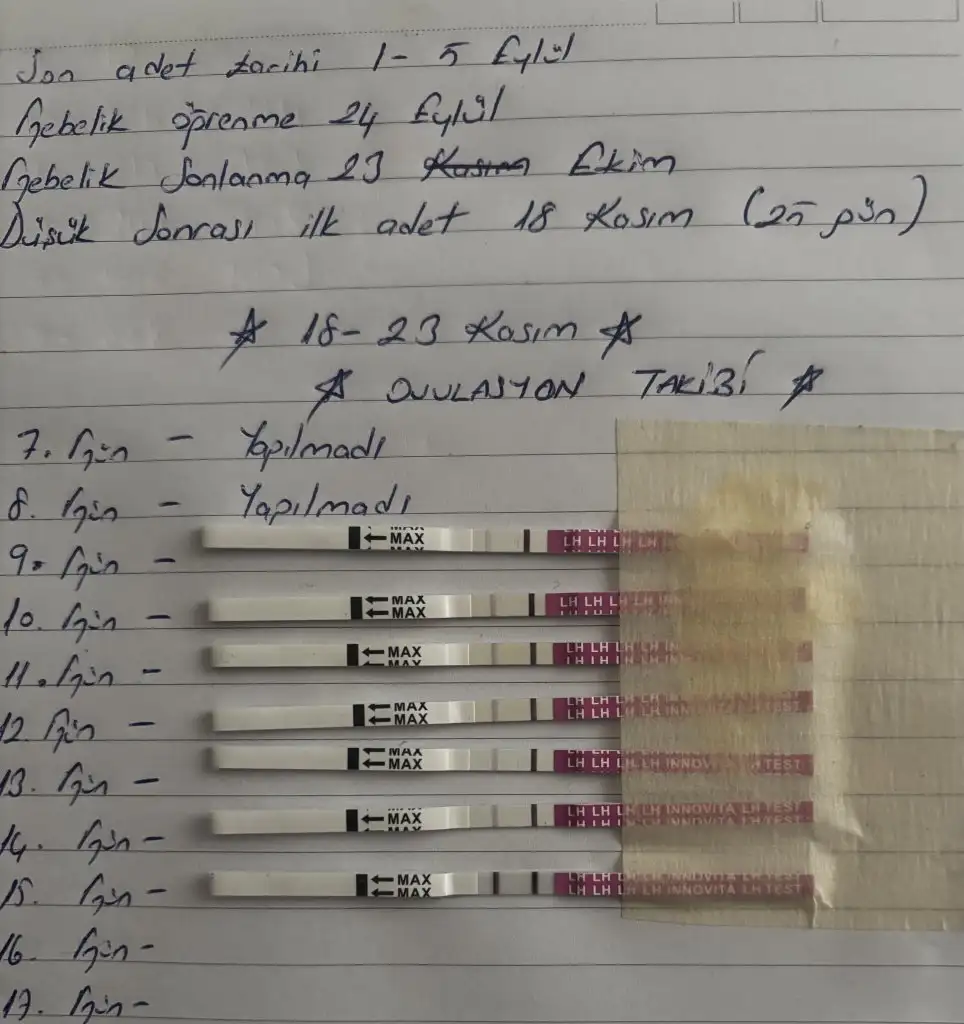 Son adet tarihi 1-5 Eylül
Gebelik öğrenme 24 Eylül
Gebelik Sonlanma 23 Kasım Ekim
Düşük Sonrası ilk adet 18 Kasım (25 gün)
18-23 Kasım
OVULASYON TAKİBİ
7. Gün - Yapılmadı
8. Gün - Yapılmadı
9. Gün -
MAX
LH LH LH LH
10. Gün -
MAX
MAX
LH LH LH LH
11. Gün -
MAX
MAX
LH LH LH LH
12. Gün -
MAX
MAX
LH LH LH LH INNOVITA LH TEST
13. Gün -
MAX
MAX
LH LH LH LH INNOVITA LH TEST
14. Gün -
MAX
MAX
LH LH LH LH INNOVITA LH TEST
15. Gün -
MAX
MAX
LH LH LH LH INNOVITA LH TEST
16. Gün -
17. Gün -